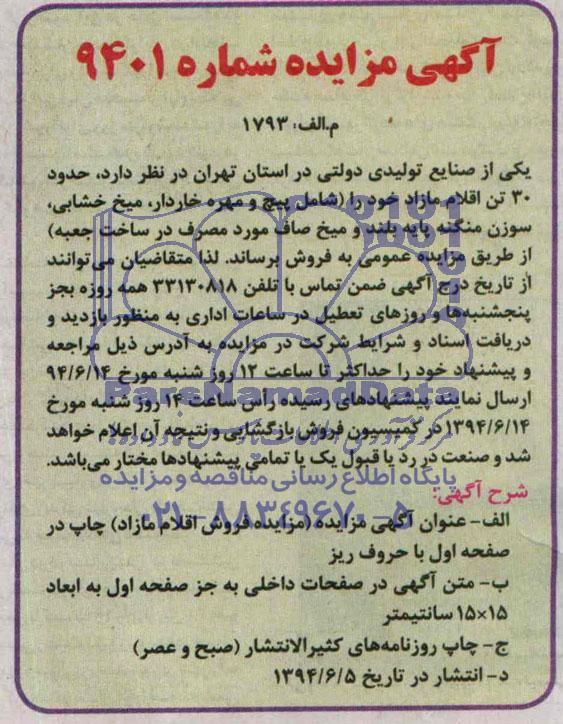 آگهی مزایده شماره ۹۴۰۱
م.الف: ۱۷۹۳
یکی از صنایع تولیدی دولتی در استان تهران در نظر دارد، حدود
۳۰ تن اقلام مازاد خود را (شامل پیچ و مهره خاردار، میخ خشابی،
سوزن منگنه پایه بلند و میخ صاف مورد مصرف در ساخت جعبه)
از طریق مزایده عمومی به فروش برساند. لذا متقاضیان می‌توانند
از تاریخ درج آگهی ضمن تماس با تلفن ۳۳۱۳۰۸۱۸ همه روزه بجز
پنجشنبه‌ها و روزهای تعطیل در ساعات اداری به منظور بازدید و
دریافت اسناد و شرایط شرکت در مزایده به آدرس ذیل مراجعه
و پیشنهاد خود را حداکثر تا ساعت ۱۲ روز شنبه مورخ ۹۴/۶/۱۴
ارسال نمایند پیشنهادهای رسیده رأس ساعت ۱۴ روز شنبه مورخ
۱۳۹۴/۶/۱۴ در کمیسیون فروش بازگشایی و نتیجه آن اعلام خواهد
شد و صنعت در رد یا قبول یک یا تمامی پیشنهادها مختار می‌باشد.
شرح آگهی:
الف- عنوان آگهی مزایده (مزایده فروش اقلام مازاد) چاپ در
صفحه اول با حروف ریز
ب- متن آگهی در صفحات داخلی به جز صفحه اول به ابعاد
۱۵×۱۵ سانتیمتر
ج- چاپ روزنامه‌های کثیرالانتشار (صبح و عصر)
د- انتشار در تاریخ ۱۳۹۴/۶/۵
ParsNamadData
پایگاه اطلاع رسانی مناقصه و مزایده
۰۲۱-۸۸۳۴۹۶۷۰-۵